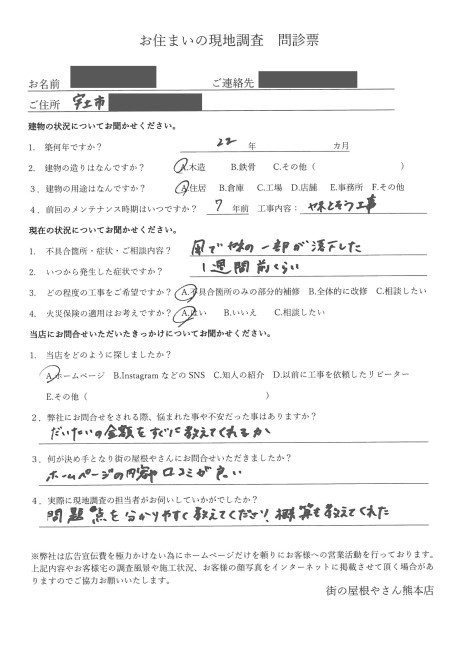 お住まいの現地調査　問診票
お名前　ご連絡先
ご住所　宇土市
建物の状況についてお聞かせください。
1.　築何年ですか？　22 年　カ月
2.　建物の造りはなんですか？　A.木造　B.鉄骨　C.その他（　）
3．建物の用途はなんですか？　A.住居　B.倉庫　C.工場　D.店舗　E.事務所　F.その他
4．前回のメンテナンス時期はいつですか？　7 年前　工事内容：　やねとそう工事
現在の状況についてお聞かせください。
1.　不具合箇所・症状・ご相談内容？　風でやねの一部が落下した
2.　いつから発生した症状ですか？　1週間前くらい
3.　どの程度の工事をご希望ですか？　A.不具合箇所のみの部分的補修　B.全体的に改修　C.相談したい
4.　火災保険の適用はお考えですか？　A.はい　B.いいえ　C.相談したい
当店にお問合せいただいたきっかけについてお聞かせください。
1.　当店をどのように探しましたか？
A.ホームページ　B.Instagram などの SNS　C.知人の紹介　D.以前に工事を依頼したリピーター
E.その他（　）
2．弊社にお問合せをされる際、悩まれた事や不安だった事はありますか？
だいたいの金額をすぐに教えてくれるか
3．何が決め手となり街の屋根やさんにお問合せいただきましたか？
ホームページの内容 口コミが良い
4．実際に現地調査の担当者がお伺いしていかがでしたか？
問題点を分かりやすく教えてくださり、概算も教えてくれた
※弊社は広告宣伝費を極力かけない為にホームページだけを頼りにお客様への営業活動を行っております。
上記内容やお客様宅の調査風景や施工状況、お客様の顔写真をインターネットに掲載させて頂く場合があ
りますのでご協力お願いいたします。
街の屋根やさん熊本店